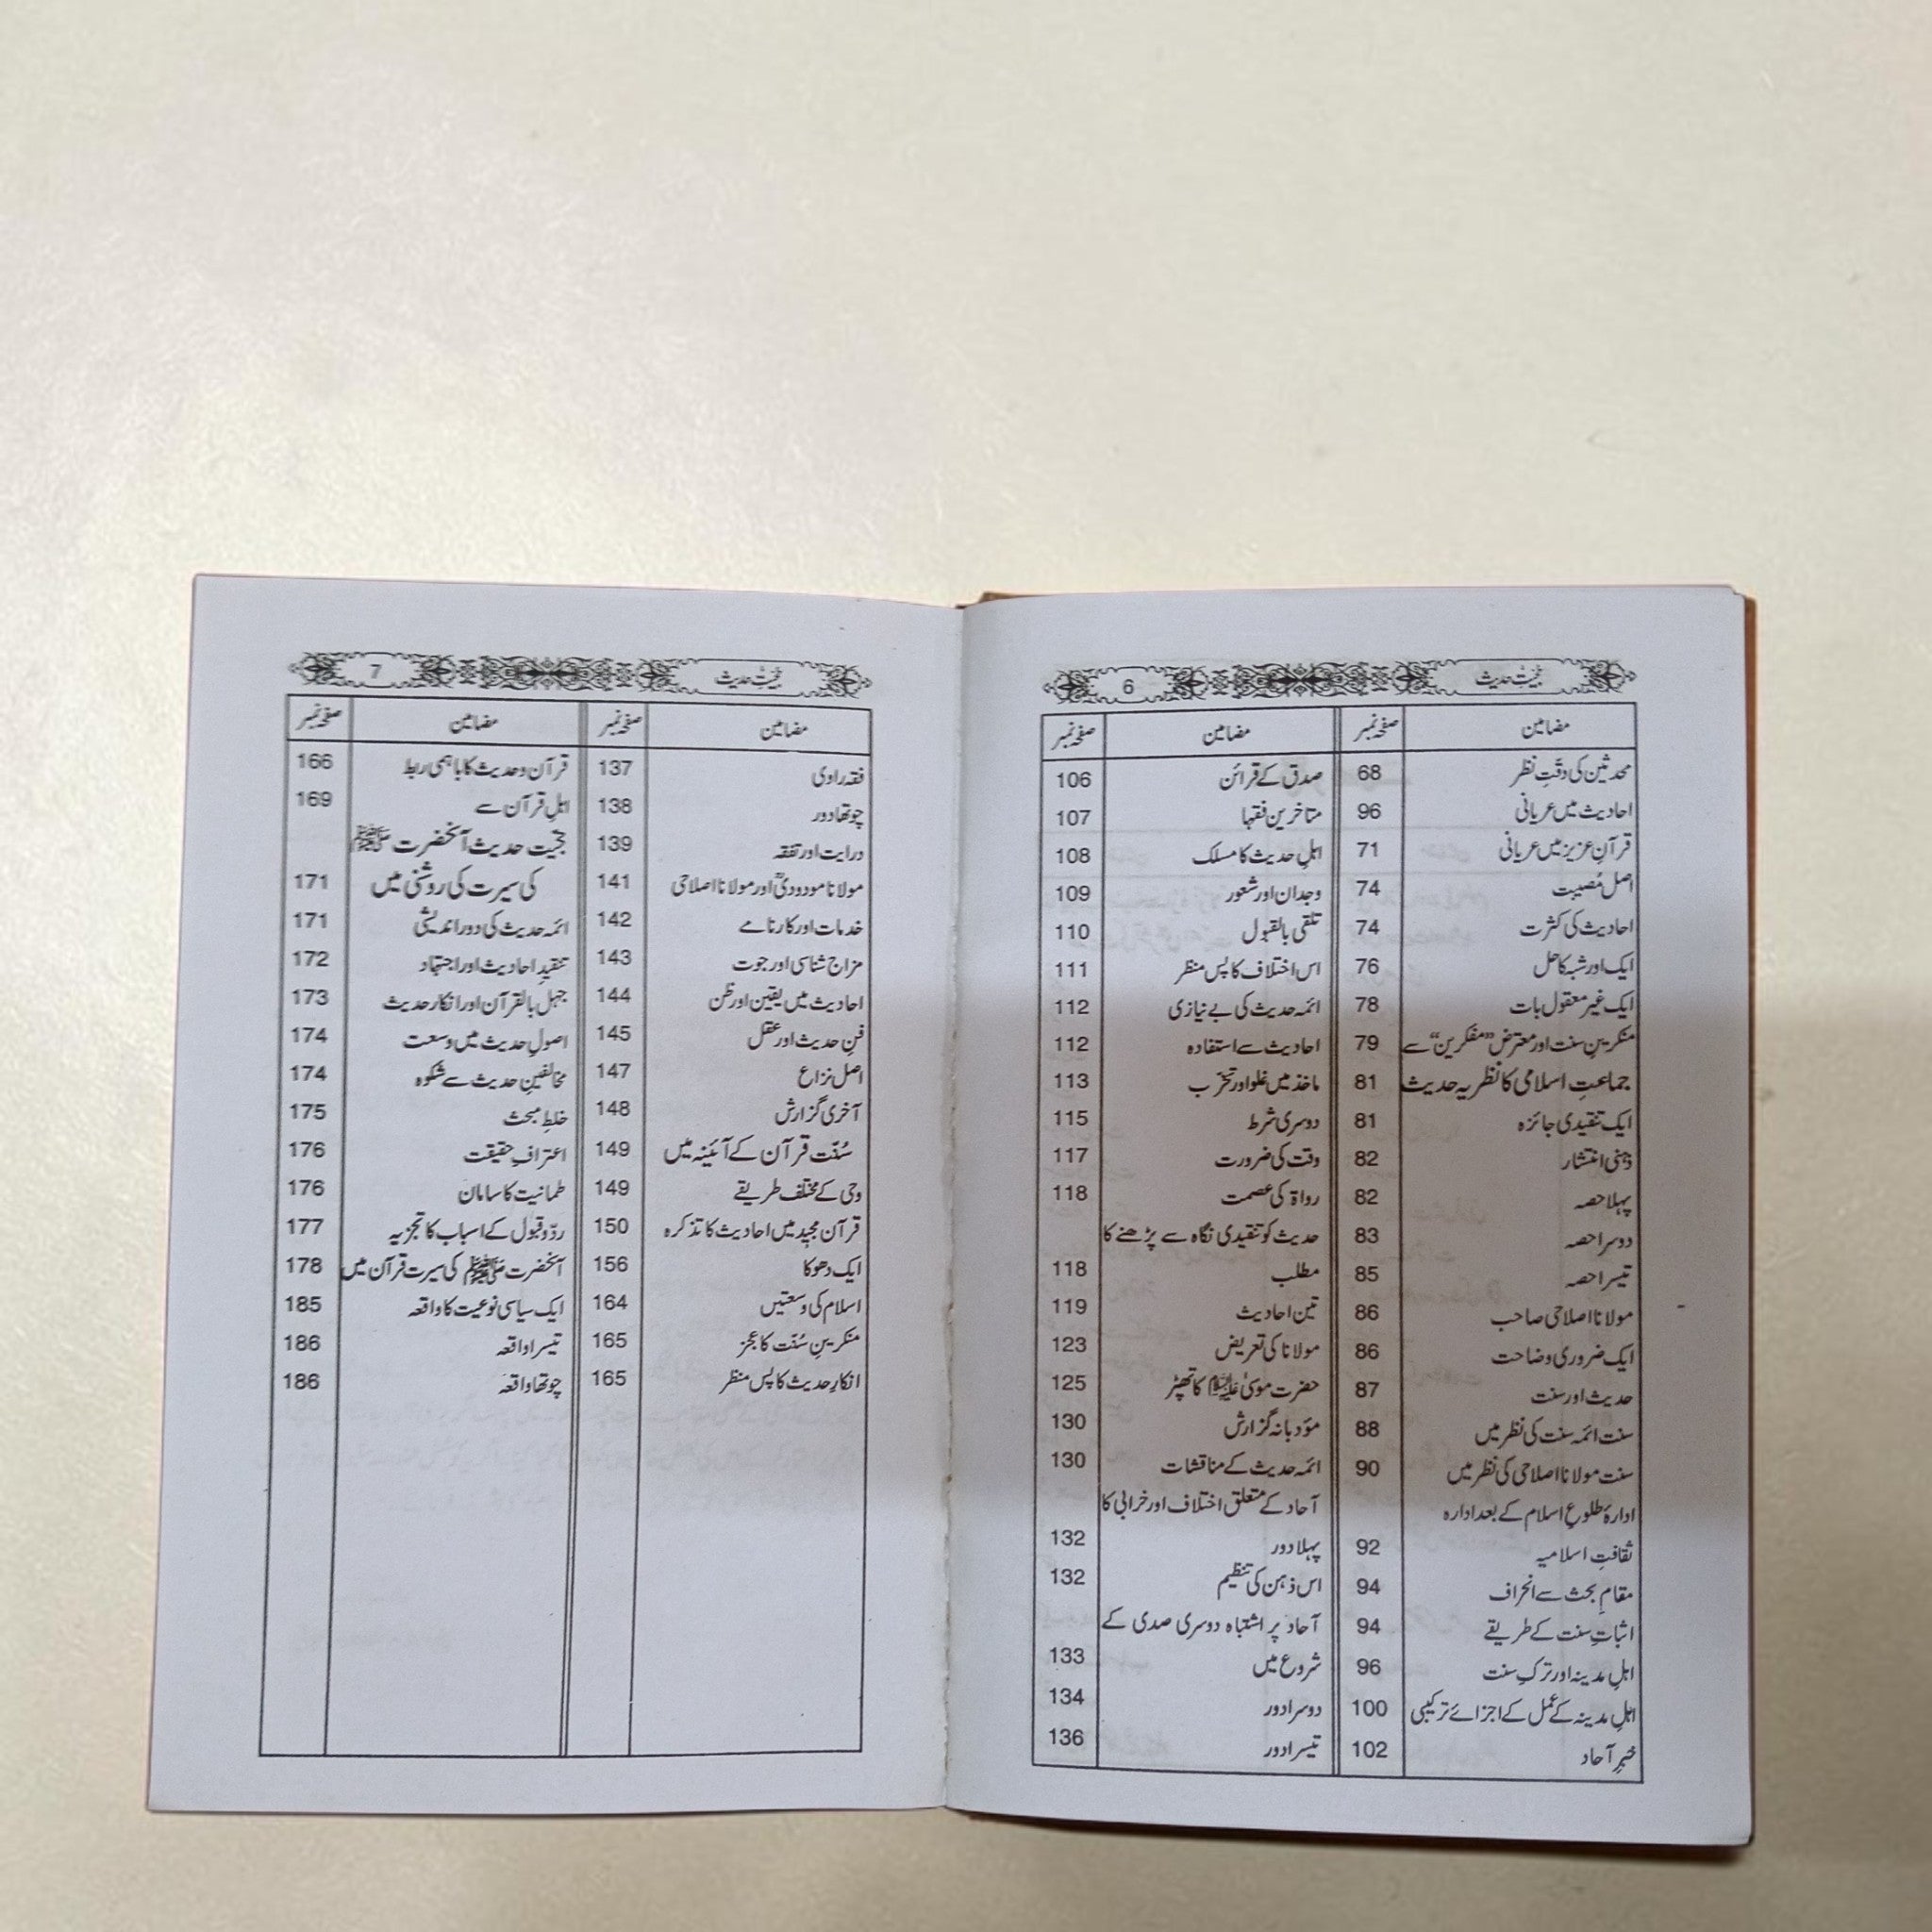 حجیتِ حدیث 6
مضامین صفحہ نمبر مضامین صفحہ نمبر
محدثین کی دقّتِ نظر 68
احادیث میں عریانی 96
قرآن عزیز میں عریانی 71
اصل مُصیبت 74
احادیث کی کثرت 74
ایک اور شبہ کا حل 76
ایک غیر معقول بات 78
منکرینِ سنت اور معترض ”مفکرین“ سے 79
جماعتِ اسلامی کا نظریہ حدیث 81
ایک تنقیدی جائزہ 81
ذہنی انتشار 82
پہلا حصہ 82
دوسرا حصہ 83
تیسرا حصہ 85
مولانا اصلاحی صاحب 86
ایک ضروری وضاحت 86
حدیث اور سنت 87
سنت ائمہ سنت کی نظر میں 88
سنت مولانا اصلاحی کی نظر میں 90
ادارۂ طلوعِ اسلام کے بعد ادارہ
ثقافتِ اسلامیہ 92
مقامِ بحث سے انحراف 94
اثباتِ سنت کے طریقے 94
اہلِ مدینہ اور ترکِ سنت 96
اہلِ مدینہ کے عمل کے اجزائے ترکیبی 100
خبرِ آحاد 102
صدق کے قرائن 106
متاخرین فقہا 107
اہلِ حدیث کا مسلک 108
وجدان اور شعور 109
تلقی بالقبول 110
اس اختلاف کا پس منظر 111
ائمہ حدیث کی بے نیازی 112
احادیث سے استفادہ 112
ماخذ میں غلو اور تحزّب 113
دوسری شرط 115
وقت کی ضرورت 117
رواۃ کی عصمت 118
حدیث کو تنقیدی نگاہ سے پڑھنے کا
مطلب 118
تین احادیث 119
مولانا کی تعریض 123
حضرت موسیٰ علیہ السلام کا تھپڑ 125
مؤدبانہ گزارش 130
ائمہ حدیث کے مناقشات 130
آحاد کے متعلق اختلاف اور خرابی کا
پہلا دور 132
اس ذہن کی تنظیم 132
آحاد پر اشتباہ دوسری صدی کے
شروع میں 133
دوسرا دور 134
تیسرا دور 136
حجیتِ حدیث 7
مضامین صفحہ نمبر مضامین صفحہ نمبر
فقہ راوی 137
چوتھا دور 138
درایت اور تفقہ 139
مولانا مودودیؒ اور مولانا اصلاحی 141
خدمات اور کارنامے 142
مزاج شناسی اور جوت 143
احادیث میں یقین اور ظن 144
فنِ حدیث اور عقل 145
اصل نزاع 147
آخری گزارش 148
سُنّت قرآن کے آئینہ میں 149
وحی کے مختلف طریقے 149
قرآن مجید میں احادیث کا تذکرہ 150
ایک دھوکا 156
اسلام کی وسعتیں 164
منکرینِ سُنّت کا عجز 165
انکارِ حدیث کا پس منظر 165
قرآن و حدیث کا باہمی ربط 166
اہلِ قرآن سے 169
حجیّت حدیث آنحضرت ﷺ
کی سیرت کی روشنی میں 171
ائمہ حدیث کی دور اندیشی 171
تنقیدِ احادیث اور اجتہاد 172
جہل بالقرآن اور انکارِ حدیث 173
اصولِ حدیث میں وسعت 174
مخالفینِ حدیث سے شکوہ 174
خلطِ مبحث 175
اعترافِ حقیقت 176
طمانیت کا سامان 176
ردّ و قبول کے اسباب کا تجزیہ 177
آنحضرت ﷺ کی سیرت قرآن میں 178
ایک سیاسی نوعیت کا واقعہ 185
تیسرا واقعہ 186
چوتھا واقعہ 186